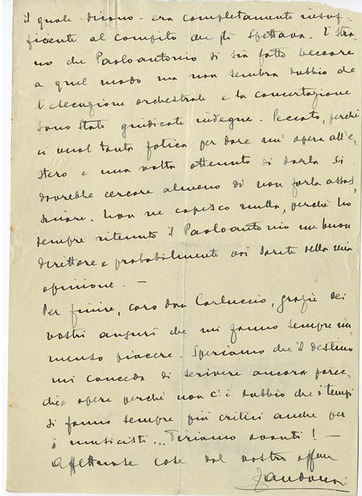 il quale - dicono - era completamente insuf-
ficente al compito che gli spettava. È stra-
no che Paolantonio di sia fatto beccare
a quel modo ma non sembra dubbio che
l'esecuzione orchestrale e la concertazione
sono state giudicate indegne. Peccato, perché
ci vuol tanta fatica per dare un'opera all'e-
stero e una volta ottenuto di darla si
dovrebbe cercare almeno di non farla assas-
sinare. Non ne capisco nulla, perché ho
sempre ritenuto il Paolantonio un buon
direttore e probabilmente voi sarete della mia
opinione. —
Per finire, caro don Carluccio, grazie dei
vostri auguri che mi fanno sempre im-
menso piacere. Speriamo che il destino
mi conceda di scrivere ancora parec-
chie opere perché non c'è dubbio che i tempi
si fanno sempre più critici anche per
i musicisti... Tiriamo avanti! —
Affettuose cose dal vostro affmo
Zandonai